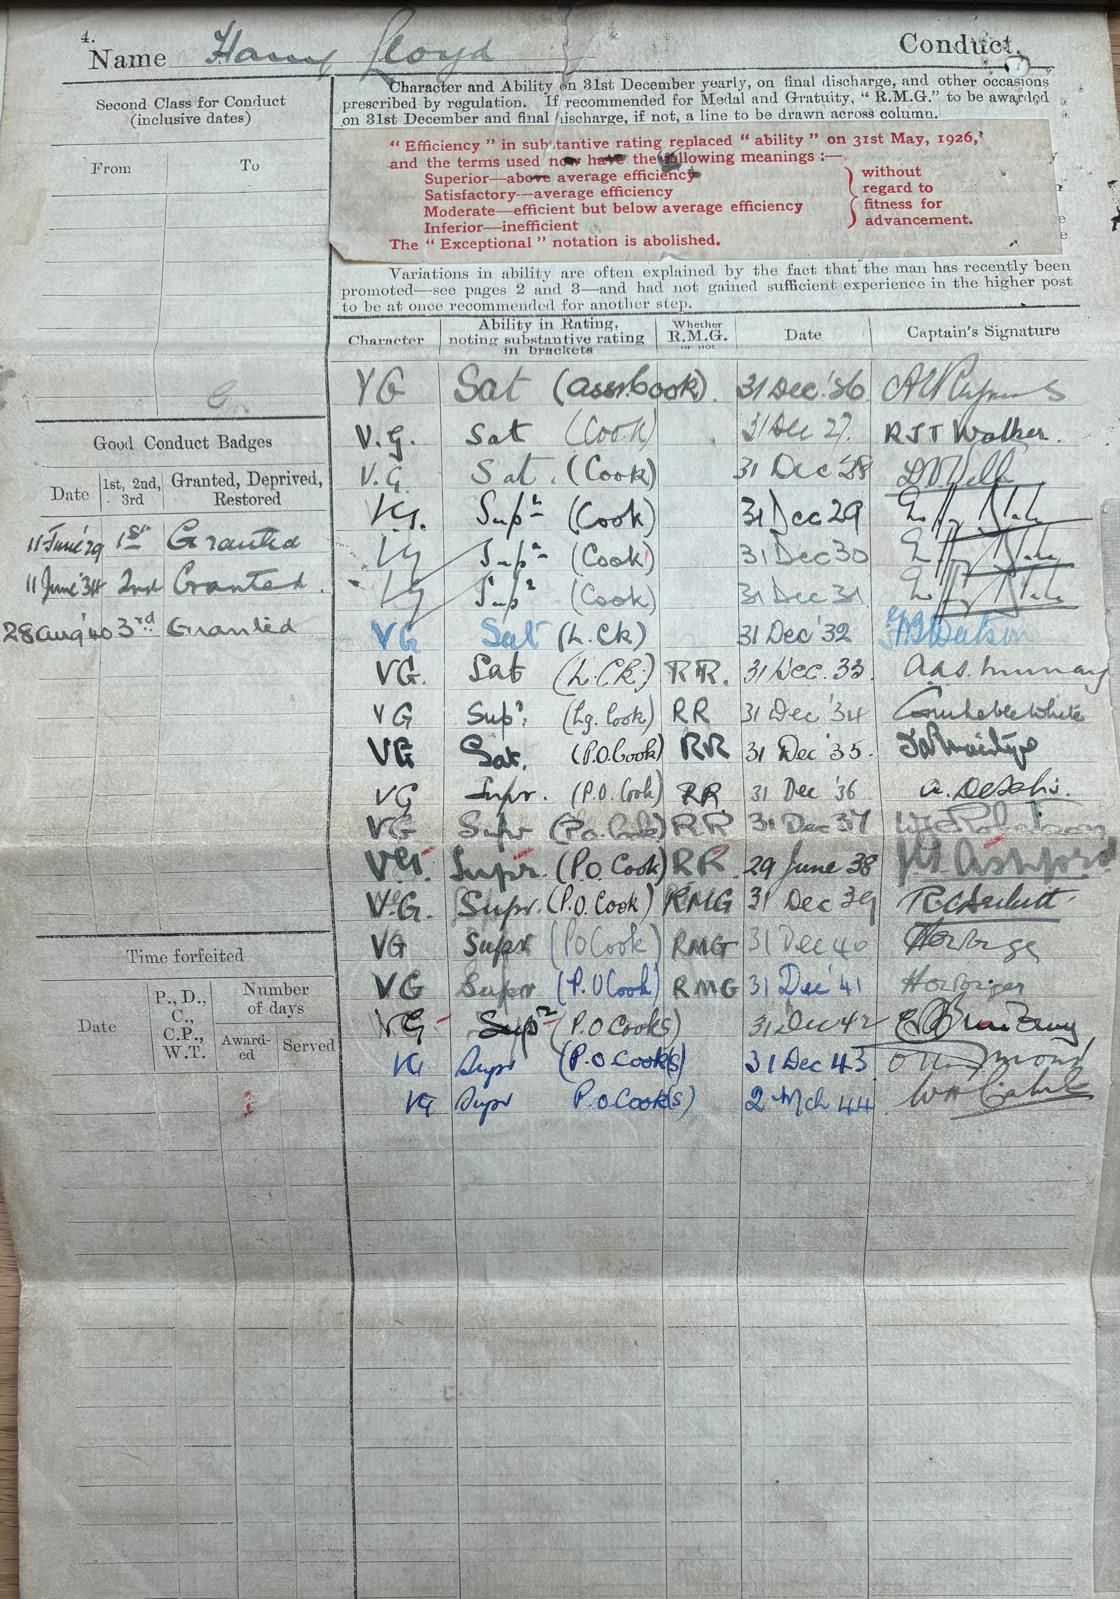 4.
Name Harry Lloyd
Conduct.
Second Class for Conduct
(inclusive dates)
From To
Good Conduct Badges
Date 1st, 2nd, 3rd Granted, Deprived, Restored
11 June '29 1st Granted
11 June '34 2nd Granted
28 Aug '40 3rd Granted
Time forfeited
Date P., D., C., C.P., W.T. Number of days
Award-ed Served
Character and Ability on 31st December yearly, on final discharge, and other occasions
prescribed by regulation. If recommended for Medal and Gratuity, "R.M.G." to be awarded
on 31st December and final discharge, if not, a line to be drawn across column.
"Efficiency" in substantive rating replaced "ability" on 31st May, 1926,
and the terms used now have the following meanings :—
Superior—above average efficiency
Satisfactory—average efficiency
Moderate—efficient but below average efficiency
Inferior—inefficient
without
regard to
fitness for
advancement.
The "Exceptional" notation is abolished.
Variations in ability are often explained by the fact that the man has recently been
promoted—see pages 2 and 3—and had not gained sufficient experience in the higher post
to be at once recommended for another step.
Character Ability in Rating, noting substantive rating in brackets Whether R.M.G. or not Date Captain's Signature
VG Sat (Asst. Cook). 31 Dec. '26
V.G. Sat (Cook) 31 Dec 27. RJT Walker.
V.G. Sat. (Cook) 31 Dec '28
VG. Supr (Cook) 31 Dec 29
VG Supr (Cook) 31 Dec 30
VG Supr (Cook) 31 Dec 31
VG Sat (L.Ck) 31 Dec '32 Watson
VG. Sat (L.CK.) RR. 31 Dec. 33. Murray
VG Supr. (Lg. Cook) RR 31 Dec '34 White
VG Sat. (P.O. Cook) RR 31 Dec '35.
VG Supr. (P.O. Cook) RR 31 Dec '36
VG Supr (P.O. Cook) RR 31 Dec 37 Robertson
VG. Supr. (P.O. Cook) RR 29 June 38 Ashford
V.G. Supr. (P.O. Cook) RMG 31 Dec 39
VG Supr (PO Cook) RMG 31 Dec 40
VG Supr (P.O Cook) RMG 31 Dec '41
VG Supr (P.O Cook s) 31 Dec 42
VG Supr (P.O. Cook(s) 31 Dec 43
VG Supr P.O Cook(s) 2 Mch 44